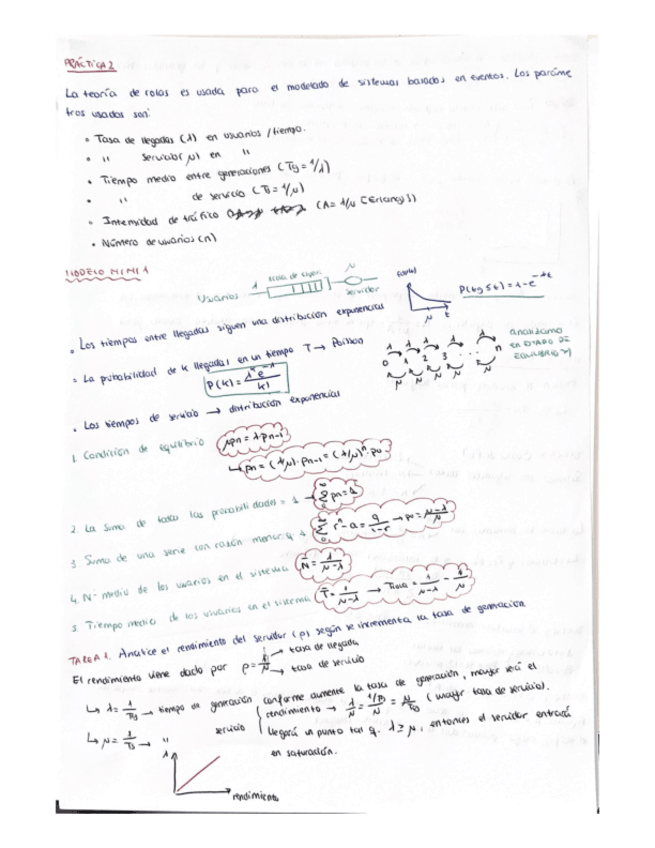 PRÁCTICA 2
La teoría de colas es usada para el modelado de sistemas basados en eventos. Los paráme
tros usados son:
• Tasa de llegadas (λ) en usuarios / tiempo.
• " servicio (μ) en "
• Tiempo medio entre generaciones (Tg = 1/λ)
• " de servicio (Ts = 1/μ)
• Intensidad de tráfico (A = λ/μ [Erlangs])
• Número de usuarios (n)
MODELO M/M/1
Usuarios λ cola de espera μ servidor
μ t
P(tg ≤ t) = 1 - e^-λt
• Los tiempos entre llegadas siguen una distribución exponencial
• La probabilidad de k llegadas en un tiempo T → Poisson
P(k) = λ^k e^-λ / k!
λ λ λ λ λ
0 1 2 3 ... n
μ μ μ μ μ
analizamos
en ESTADO DE
EQUILIBRIO
• Los tiempos de servicio → distribución exponencial
1. Condición de equilibrio μpn = λpn-1
↳ pn = (λ/μ)·pn-1 = (λ/μ)^n · p0
2. La suma de todas las probabilidades = 1 → ∑ pn = 1
3. Suma de una serie con razón menor q 1
4. Nº medio de los usuarios en el sistema N = λ/μ-λ
5. Tiempo medio de los usuarios en el sistema T = 1/μ-λ
TAREA 1. Analice el rendimiento del servidor (ρ) según se incrementa la tasa de generación
El rendimiento viene dado por ρ = λ/μ → tasa de llegada → tasa de servicio
↳ λ = 1/Tg → tiempo de generación
↳ μ = 1/Ts → " servicio
conforme aumente la tasa de generación, mayor será el
rendimiento → (mayor tasa de servicio).
llegará un punto tal q. λ ≥ μ, entonces el servidor entrará
en saturación.
λ
rendimiento